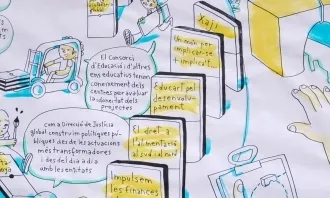 El Consorci
d'Educació i d'altres
ens educatius tenim
coneixement dels
centres per avaluar
la idoneïtat dels
projectes
com a Direcció de Justícia
global construïm polítiques pú-
bliques des de les actuacions
més transformadores
i des del dia a dia
amb les entitats
Un món per
implicar-se
i implicar
Educar pel
desenvolu-
pament
El dret a
l'alimentació
Impulsem
les finances